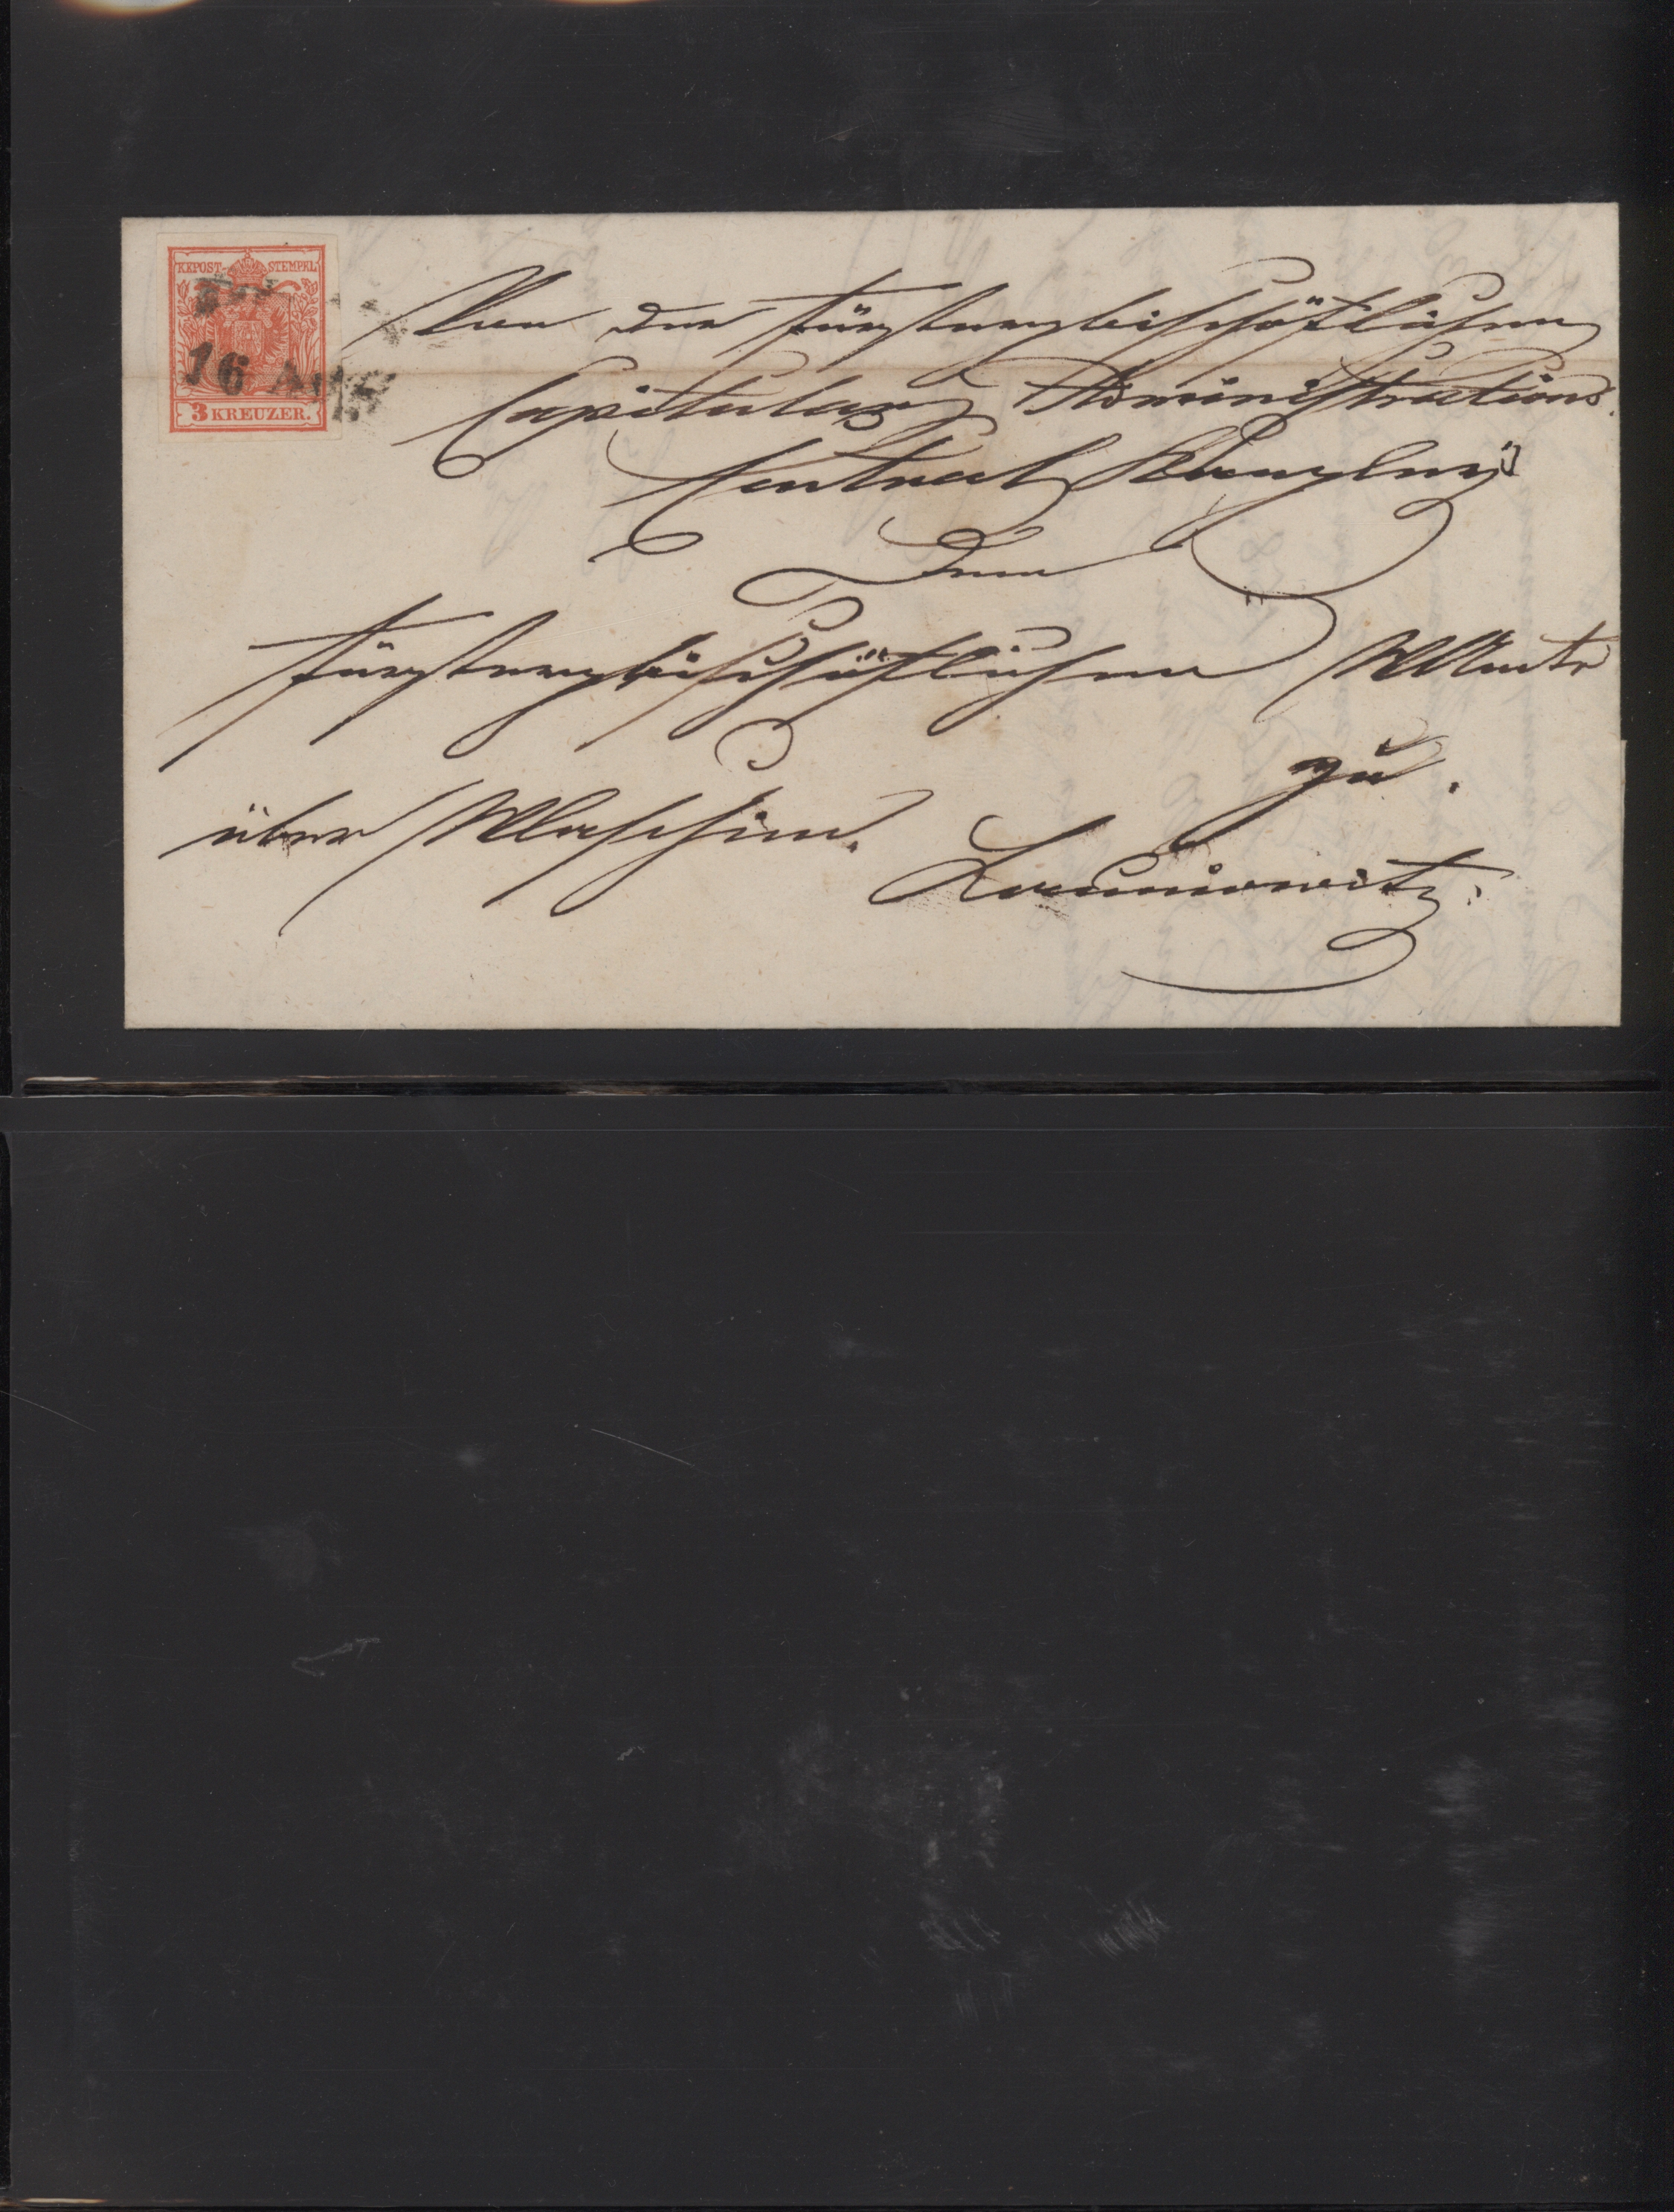 KKPOST-STEMPEL
16 AUG
3 KREUZER.
Von der fürsterzbischöflichen
Capitular Administrations
Central Kanzley
Dem
fürsterzbischöflichen WAmte
zu.
über Wlaschim.
Launiowitz.